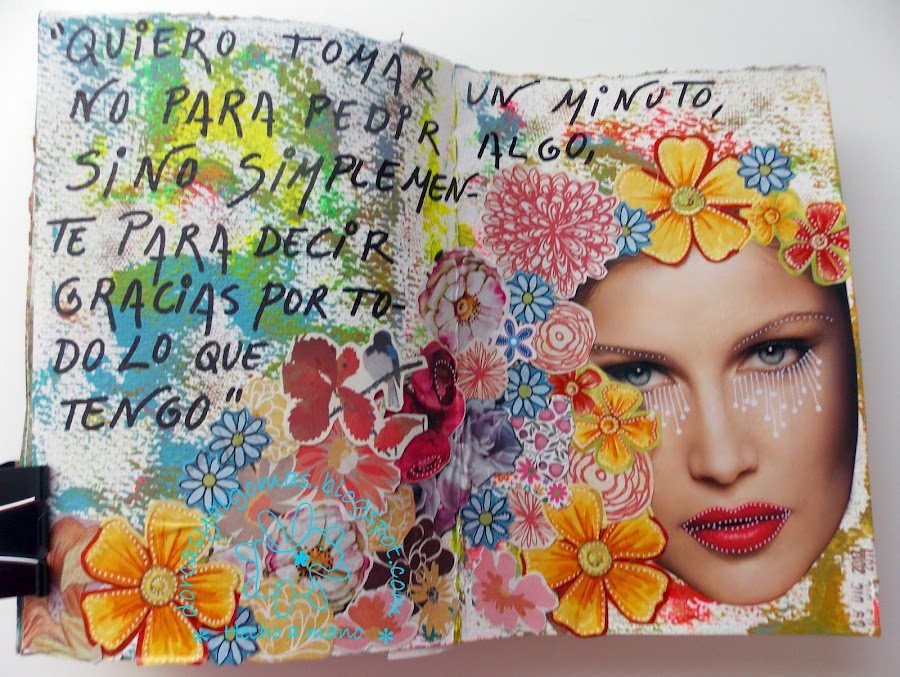 "QUIERO TOMAR UN MINUTO,
NO PARA PEDIR ALGO,
SINO SIMPLEMEN-
TE PARA DECIR
GRACIAS POR TO-
DO LO QUE
TENGO"
* Hecho a mano *